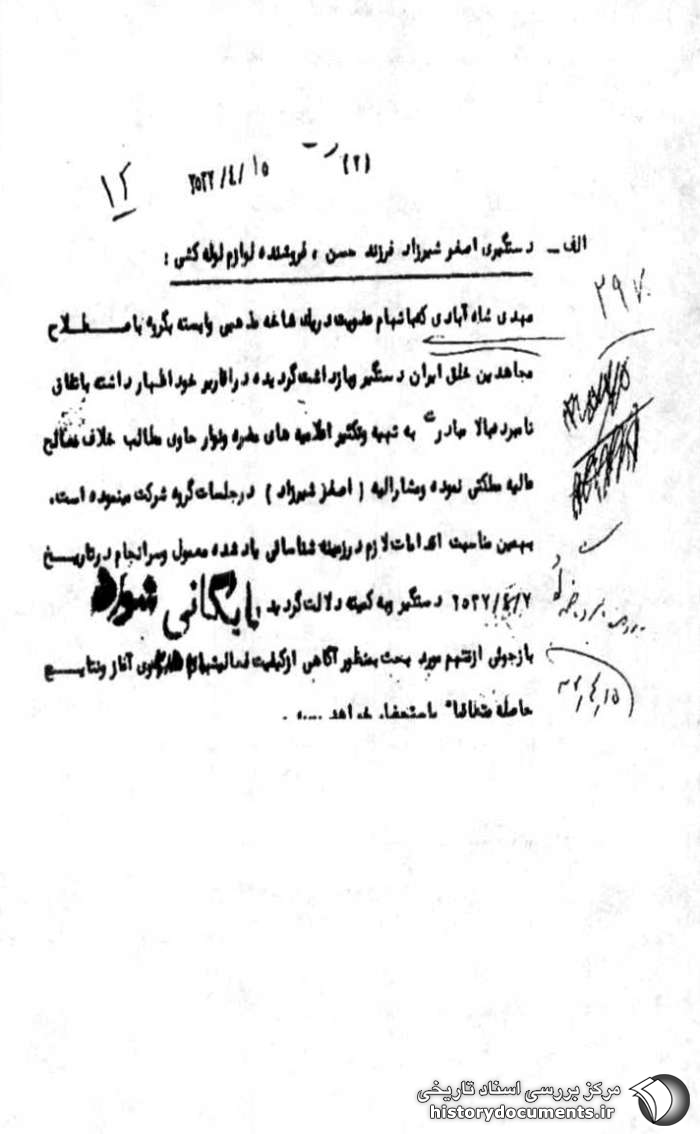 (۲)
۲۵۳۷/٤/۱۵
۱۲
الف ـ دستگیری اصغر شیرزاد فرزند حسن ، فروشنده لوازم لوله کشی :
مهدی شاه آبادی که باتهام عضویت در یک شاخه مذهبی وابسته بگروه باصطلاح
مجاهدین خلق ایران دستگیر وبازداشت گردیده در اقاریر خود اظهار داشته باتفاق
نامبرده بالا مبادرت به تهیه وتکثیر اعلامیه های مضره ونوار حاوی مطالب خلاف مصالح
عالیه مملکتی نموده ومشارالیه ( اصغر شیرزاد ) در جلسات گروه شرکت مینموده است .
بهمین مناسبت اقدامات لازم در زمینه شناسائی یاد شده معمول وسرانجام در تاریخ
۲۵۳۷/٤/۷ دستگیر وبه کمیته دلالت گردید .
بایگانی شود
بازجوئی از متهم مورد بحث بمنظور آگاهی از کیفیت فعالیتهای وی آغاز ونتایج
حاصله متعاقباً باستحضار خواهد رسید .
۳۹۷
۳۷,۴,۱۵
مرکز بررسی اسناد تاریخی
historydocuments.ir